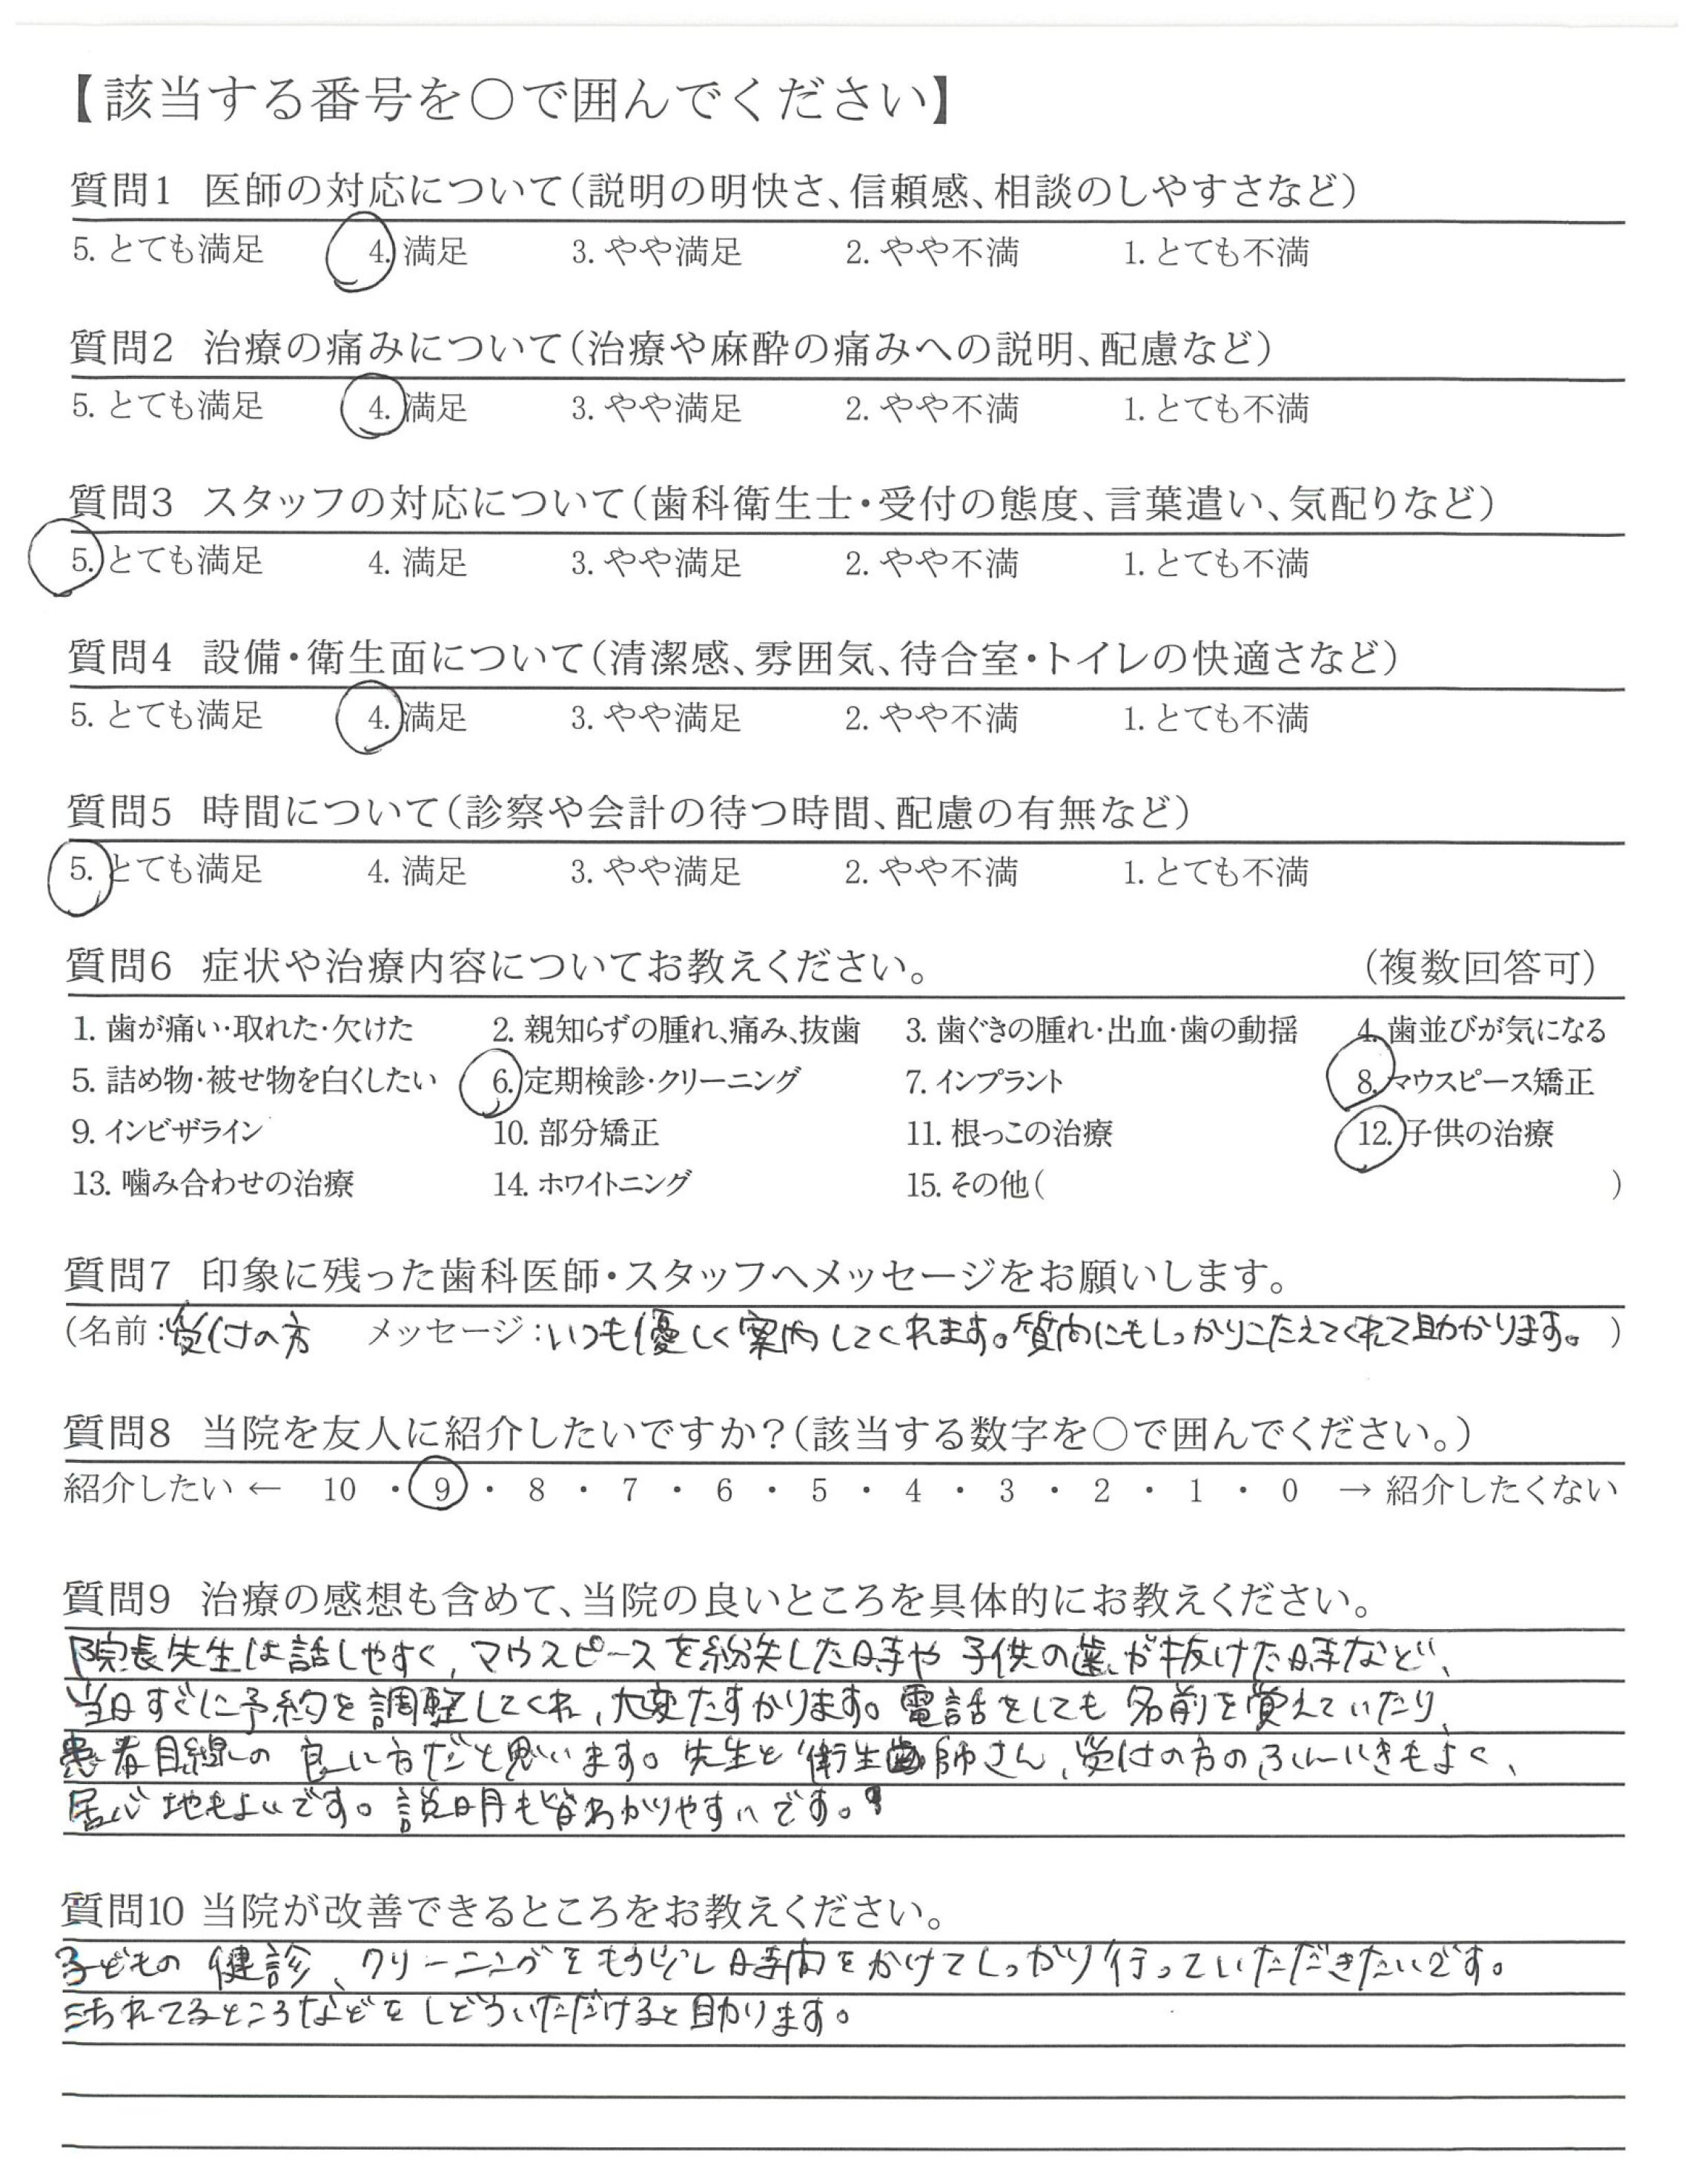 【該当する番号を○で囲んでください】
質問1 医師の対応について(説明の明快さ、信頼感、相談のしやすさなど)
5. とても満足 4. 満足 3. やや満足 2. やや不満 1. とても不満
質問2 治療の痛みについて(治療や麻酔の痛みへの説明、配慮など)
5. とても満足 4. 満足 3. やや満足 2. やや不満 1. とても不満
質問3 スタッフの対応について(歯科衛生士・受付の態度、言葉遣い、気配りなど)
5. とても満足 4. 満足 3. やや満足 2. やや不満 1. とても不満
質問4 設備・衛生面について(清潔感、雰囲気、待合室・トイレの快適さなど)
5. とても満足 4. 満足 3. やや満足 2. やや不満 1. とても不満
質問5 時間について(診察や会計の待つ時間、配慮の有無など)
5. とても満足 4. 満足 3. やや満足 2. やや不満 1. とても不満
質問6 症状や治療内容についてお教えください。 (複数回答可)
1. 歯が痛い・取れた・欠けた 2. 親知らずの腫れ、痛み、抜歯 3. 歯ぐきの腫れ・出血・歯の動揺 4. 歯並びが気になる
5. 詰め物・被せ物を白くしたい 6. 定期検診・クリーニング 7. インプラント 8. マウスピース矯正
9. インビザライン 10. 部分矯正 11. 根っこの治療 12. 子供の治療
13. 噛み合わせの治療 14. ホワイトニング 15. その他( )
質問7 印象に残った歯科医師・スタッフへメッセージをお願いします。
(名前:受付の方 メッセージ:いつも優しく案内してくれます。質問にもしっかりこたえてくれて助かります。)
質問8 当院を友人に紹介したいですか?(該当する数字を○で囲んでください。)
紹介したい ← 10 ・ 9 ・ 8 ・ 7 ・ 6 ・ 5 ・ 4 ・ 3 ・ 2 ・ 1 ・ 0 → 紹介したくない
質問9 治療の感想も含めて、当院の良いところを具体的にお教えください。
院長先生は話しやすく、マウスピースを紛失した時や子供の歯が抜けた時など、
当日すぐに予約を調整してくれ、大変たすかります。電話をしても名前を覚えていたり、
患者目線の良い方だと思います。先生と衛生師さん、受付の方のふんいきもよく、
居心地もよいです。説明も皆わかりやすいです。
質問10 当院が改善できるところをお教えください。
子どもの健診、クリーニングをもう少し時間をかけてしっかり行っていただきたいです。
汚れてるところなどをしどういただけると助かります。